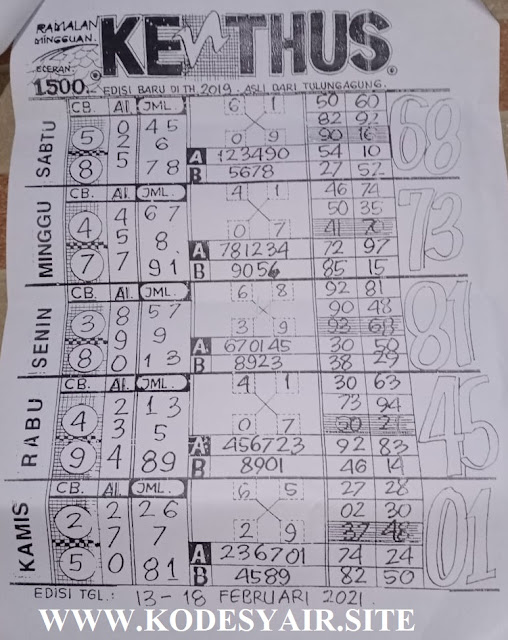 RAMALAN
MINGGUAN.
ECERAN.
1500.
KENTHUS.
EDISI BARU DI TH. 2019. ASLI DARI TULUNGAGUNG.
SABTU
CB. AI. JML.
5 8
0 2 5
4 5
6
7 8
6 1
0 9
A 123490
B 5678
50 60
82 92
90 16
54 10
27 52
68
MINGGU
CB. AI. JML.
4 7
4 5 7
6 7
8
9 1
4 1
0 7
A 781234
B 9056
46 74
50 35
41 70
72 97
85 15
73
SENIN
CB. AI. JML.
3 8
8 9 0
5 7
9
1 3
6 8
3 9
A 670145
B 8923
92 81
90 48
93 68
30 50
38 29
81
RABU
CB. AI. JML.
4 9
2 3 4
1 3
5
8 9
4 1
0 7
A 456723
B 8901
30 63
73 94
92 83
46 14
45
KAMIS
CB. AI. JML.
2 5
2 7 0
2 6
7
81
6 5
2 9
A 236701
B 4589
27 28
02 30
37 48
74 24
82 50
01
EDISI TGL.: 13 - 18 FEBRUARI 2021.
WWW.KODESYAIR.SITE